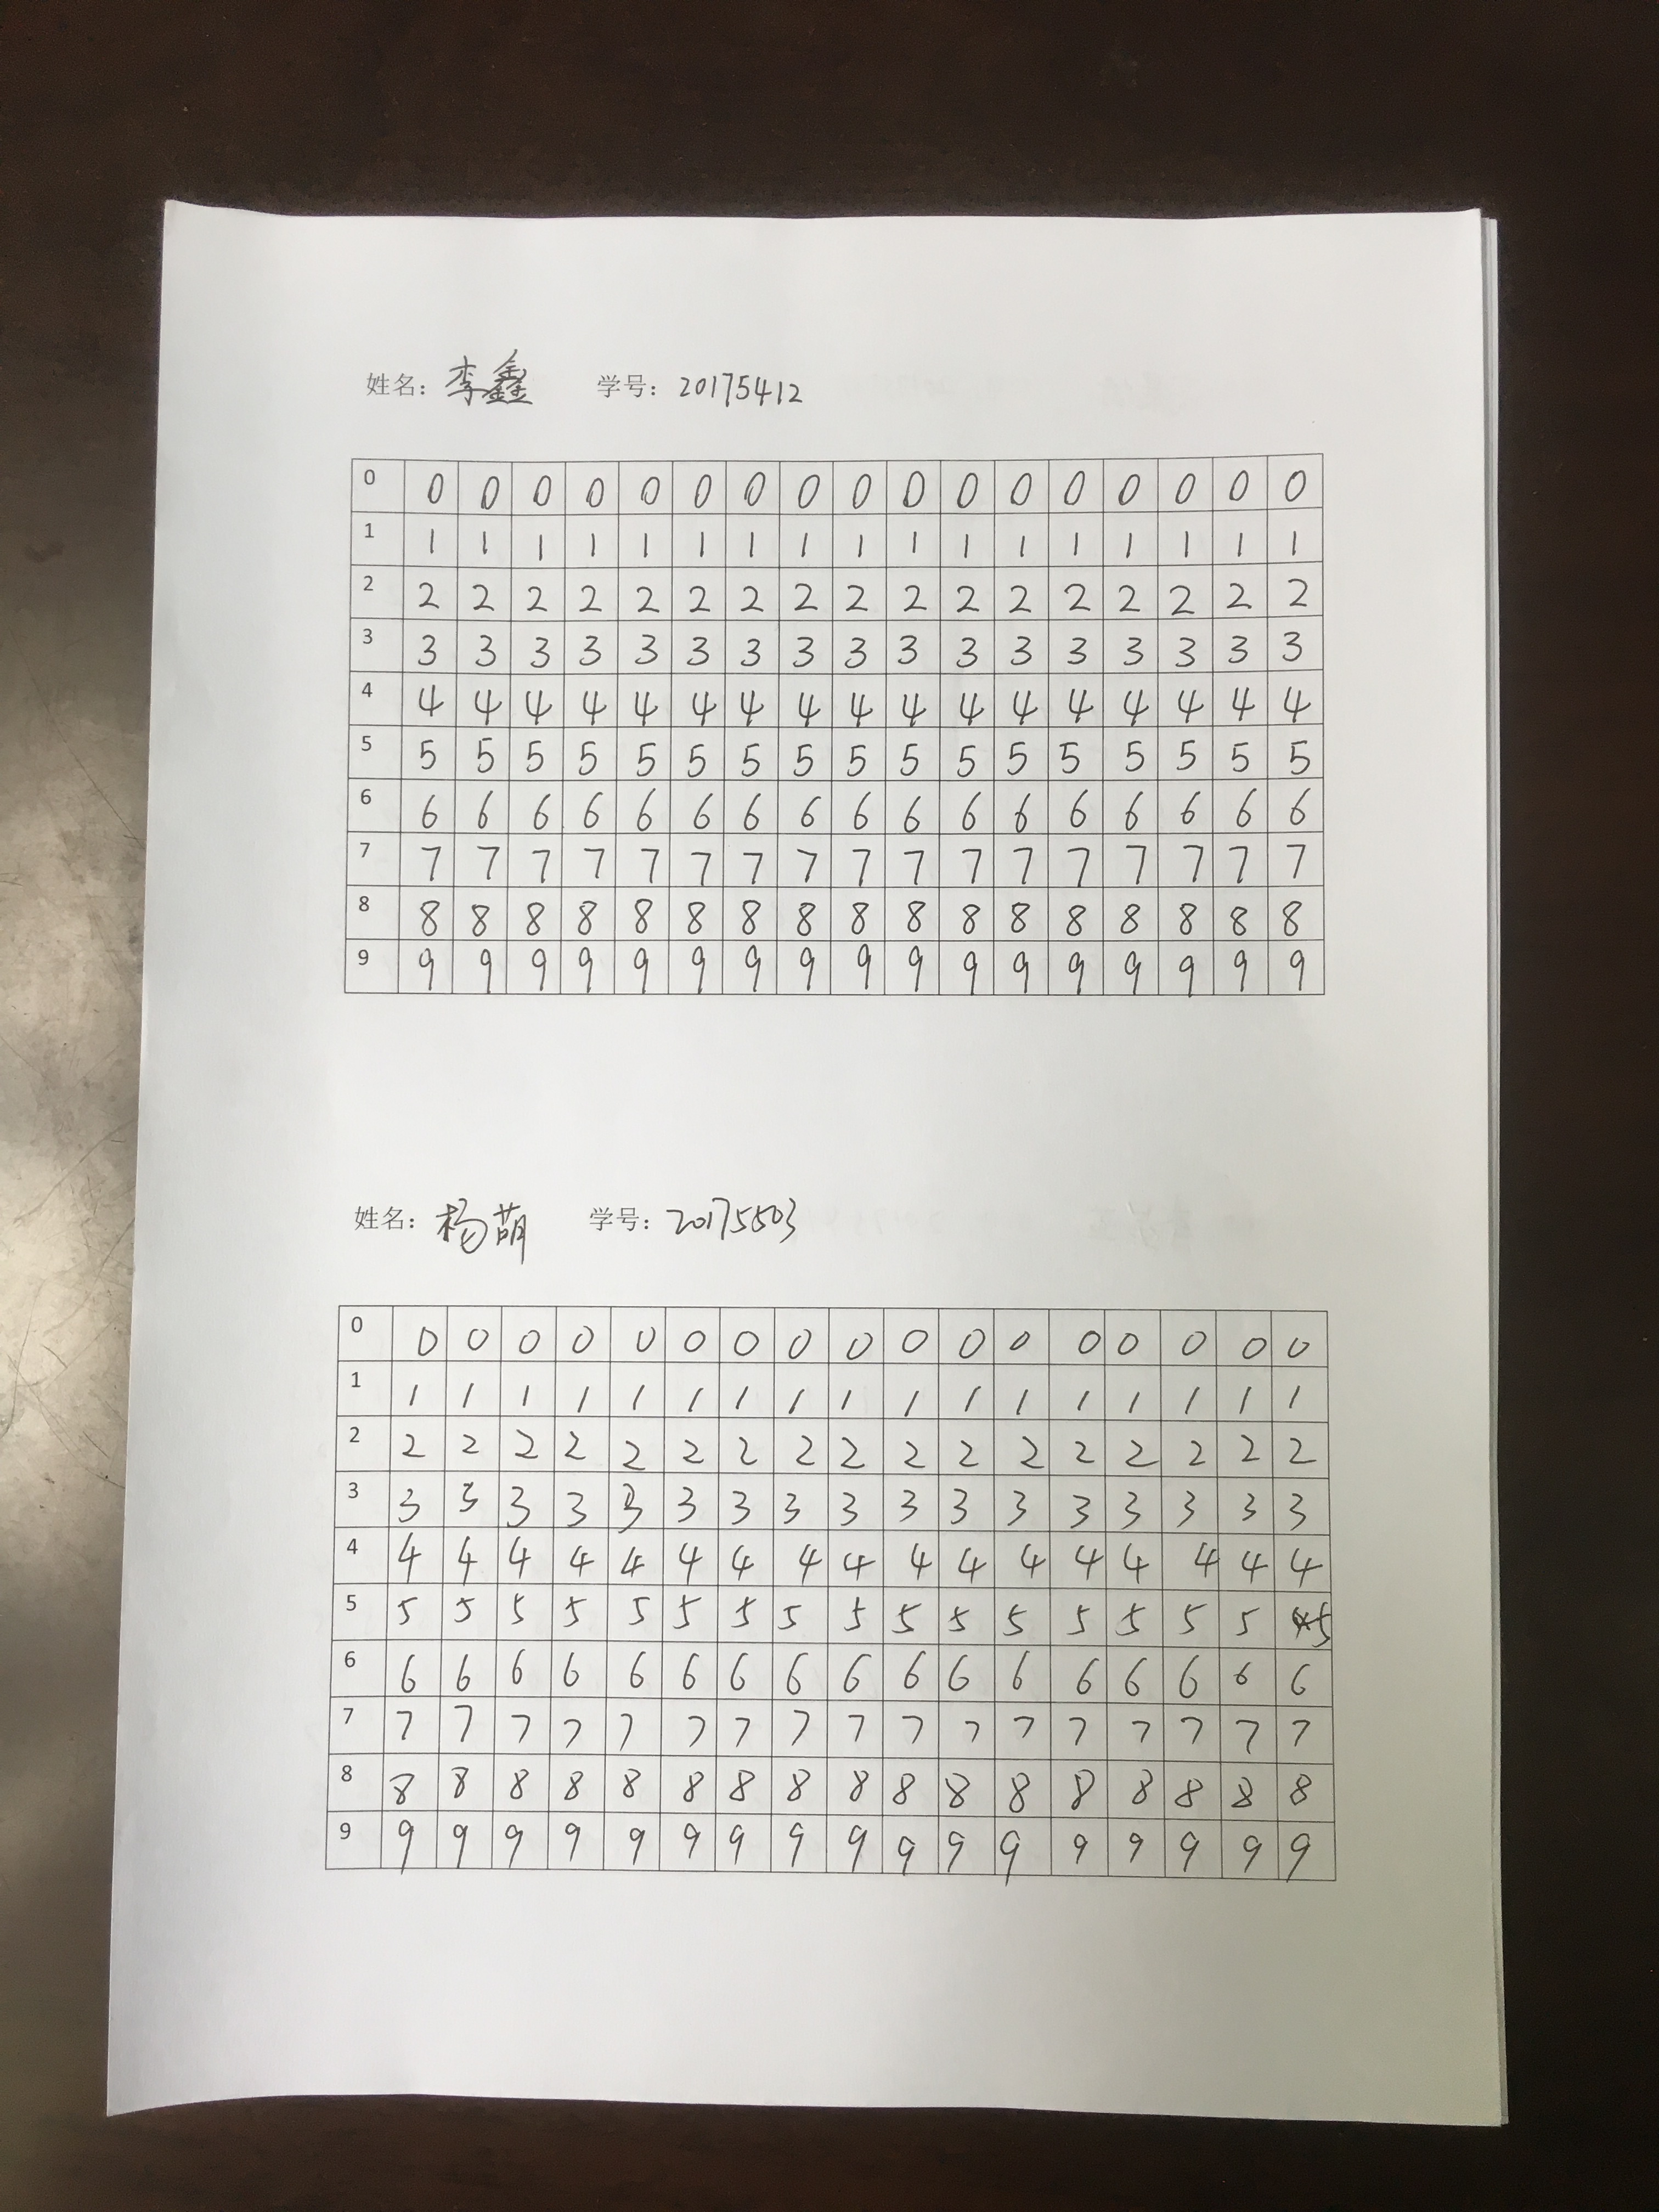 姓名：李鑫 学号：20175412
0 0 0 0 0 0 0 0 0 0 0 0 0 0 0 0 0 0
1 1 1 1 1 1 1 1 1 1 1 1 1 1 1 1 1 1
2 2 2 2 2 2 2 2 2 2 2 2 2 2 2 2 2 2
3 3 3 3 3 3 3 3 3 3 3 3 3 3 3 3 3 3
4 4 4 4 4 4 4 4 4 4 4 4 4 4 4 4 4 4
5 5 5 5 5 5 5 5 5 5 5 5 5 5 5 5 5 5
6 6 6 6 6 6 6 6 6 6 6 6 6 6 6 6 6 6
7 7 7 7 7 7 7 7 7 7 7 7 7 7 7 7 7 7
8 8 8 8 8 8 8 8 8 8 8 8 8 8 8 8 8 8
9 9 9 9 9 9 9 9 9 9 9 9 9 9 9 9 9 9
姓名：杨萌 学号：20175503
0 0 0 0 0 0 0 0 0 0 0 0 0 0 0 0 0 0
1 1 1 1 1 1 1 1 1 1 1 1 1 1 1 1 1 1
2 2 2 2 2 2 2 2 2 2 2 2 2 2 2 2 2 2
3 3 3 3 3 3 3 3 3 3 3 3 3 3 3 3 3 3
4 4 4 4 4 4 4 4 4 4 4 4 4 4 4 4 4 4
5 5 5 5 5 5 5 5 5 5 5 5 5 5 5 5 5 5
6 6 6 6 6 6 6 6 6 6 6 6 6 6 6 6 6 6
7 7 7 7 7 7 7 7 7 7 7 7 7 7 7 7 7 7
8 8 8 8 8 8 8 8 8 8 8 8 8 8 8 8 8 8
9 9 9 9 9 9 9 9 9 9 9 9 9 9 9 9 9 9